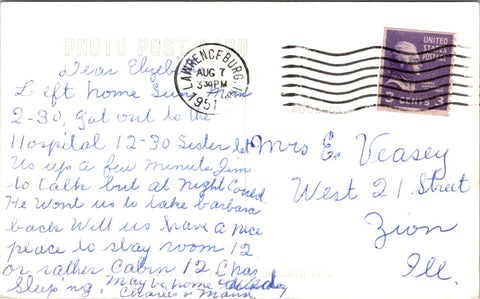 PHOTO POST CARD
LAWRENCEBURG, I
AUG 7
3 30 PM
1951
UNITED
STATES
POSTAGE
3 CENTS 3
Dear Elizbeth
Left home Sun Morn
2-30, Got out to the
Hospital 12-30 Sister let
Us up a few minute Jim
to talk but at night Could
He Wont us to take barbara
back Will us have a nice
place to stay room 12
or rather Cabin 12 Chas
Sleeping, May be home
Charles & Maud
Mrs E. Veasey
West 21 Street
Zion
Ill.